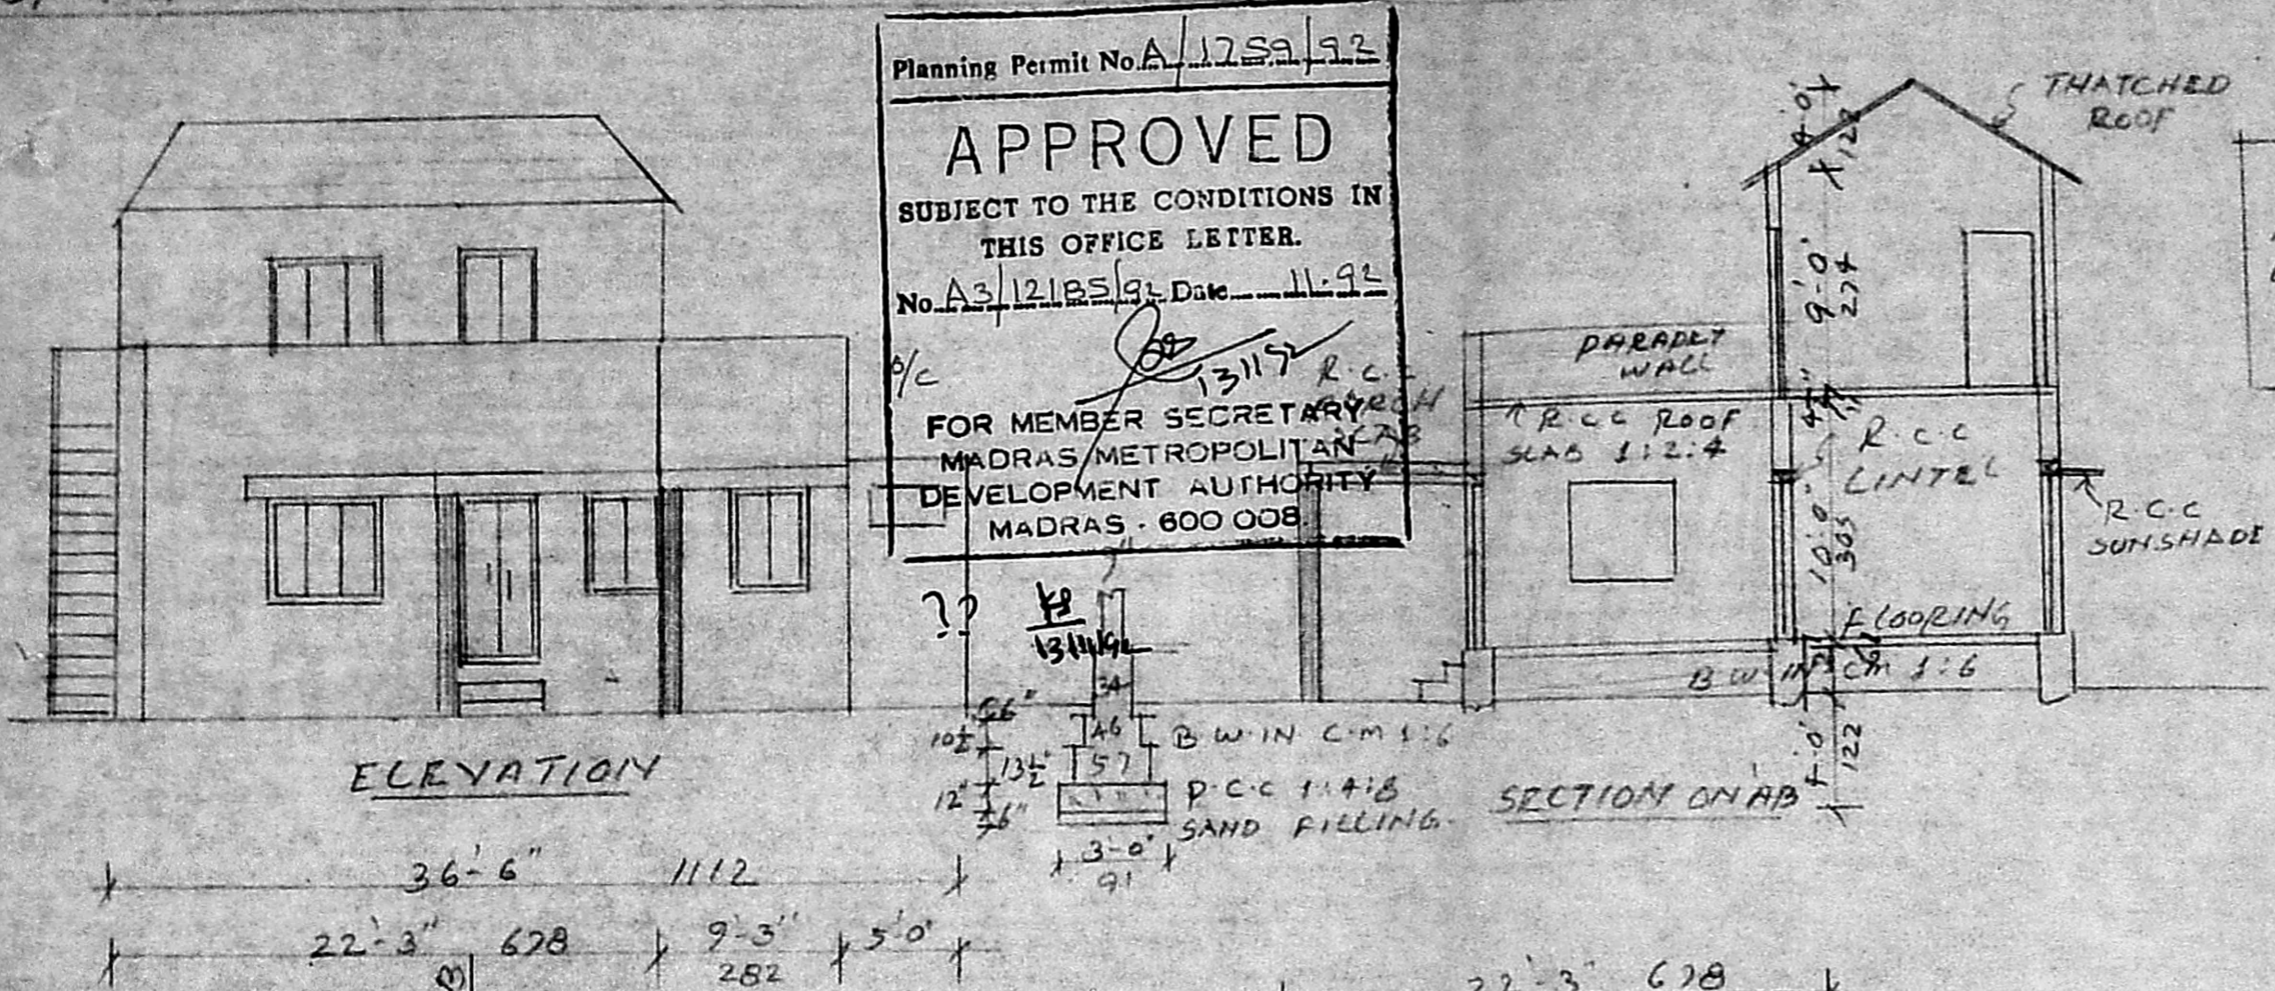 Planning Permit No. A/1259/92
APPROVED
SUBJECT TO THE CONDITIONS IN
THIS OFFICE LETTER.
No. A3/12185/92 Date 11.92
FOR MEMBER SECRETARY
MADRAS METROPOLITAN
DEVELOPMENT AUTHORITY
MADRAS - 600 008.
??
13/11/92
THATCHED
ROOF
4'-0"
122
9'-0"
274
PARAPET
WALL
R.C.C ROOF
SLAB 1:2:4
R.C.C
LINTEL
R.C.C
SUNSHADE
10'-0"
305
FLOORING
B W IN CM 1:6
4'-0"
122
SECTION ON 'AB'
ELEVATION
34
46
57
6"
10½
13½"
12"
6"
B W IN C.M 1:6
P.C.C 1:4:8
SAND FILLING
3-0"
91
36'-6" 1112
22'-3" 678
9'-3"
282
5'0"
B
22'-3" 678